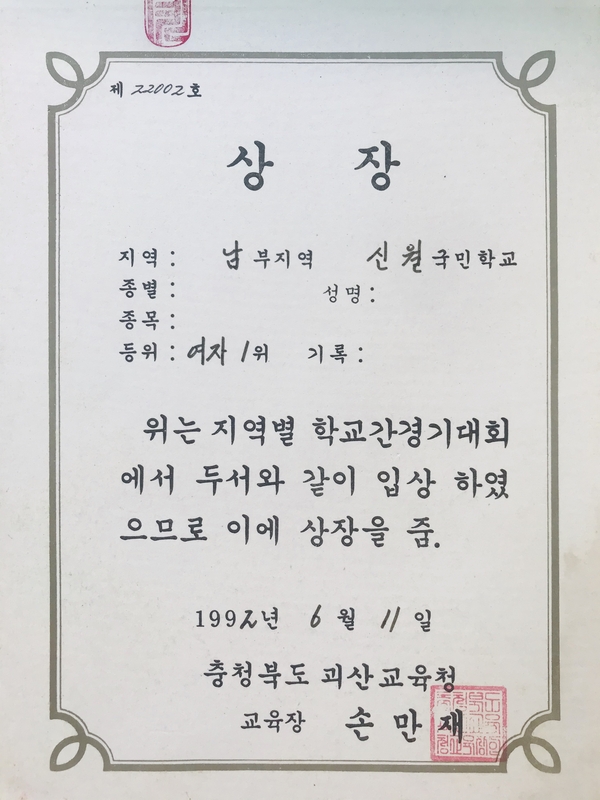 제 22002 호
상 장
지역 : 남부지역 신월국민학교
종별 : 성명 :
종목 :
등위 : 여자 1위 기록 :
위는 지역별 학교간경기대회
에서 두서와 같이 입상 하였
으므로 이에 상장을 줌.
1992년 6월 11일
충청북도 괴산교육청
교육장 손만재